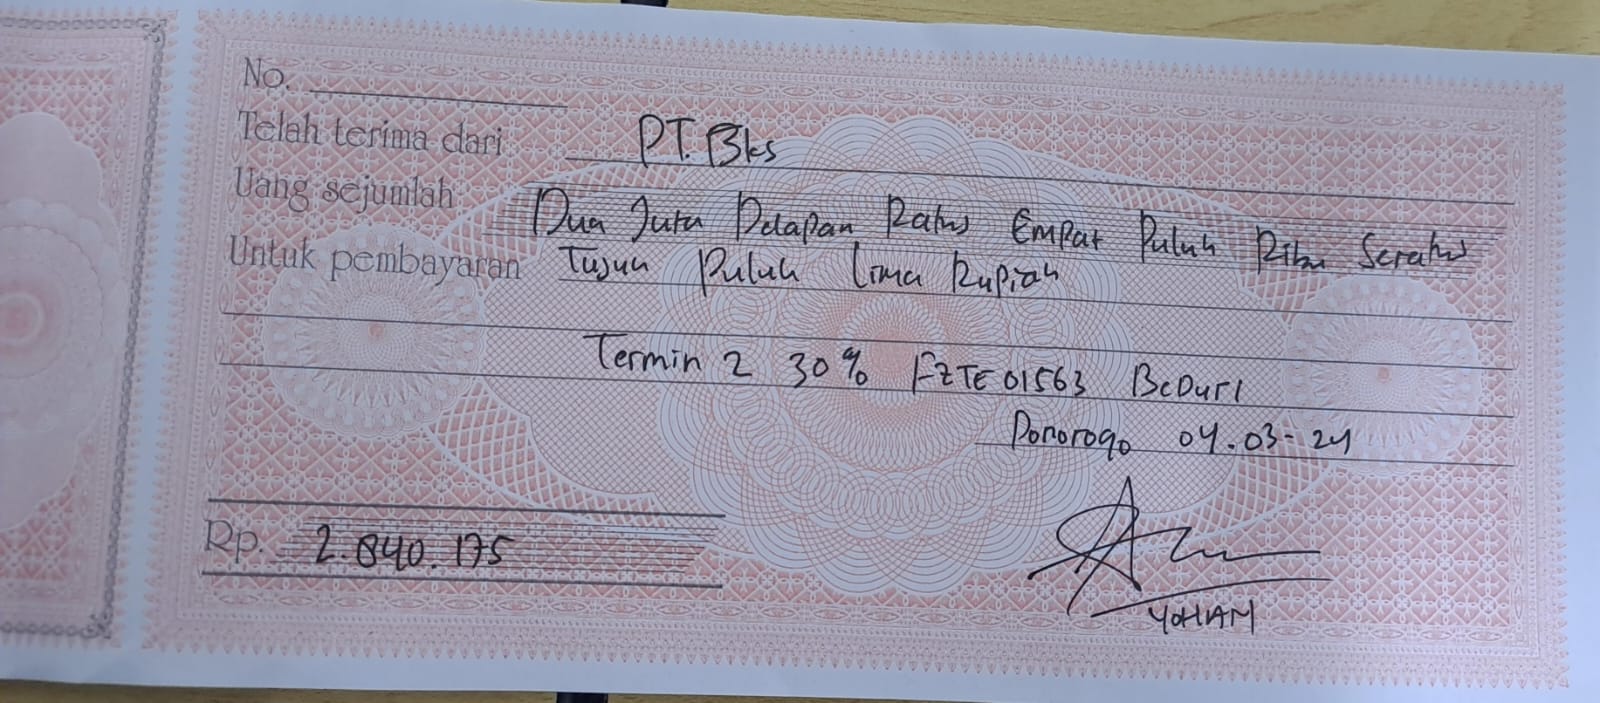 No.
Telah terima dari PT. Bks
Uang sejumlah Dua Juta Delapan Ratus Empat Puluh Ribu Seratus
Untuk pembayaran Tujuh Puluh Lima Rupiah
Termin 2 30% FZTE01563 BcDurI
Ponorogo 04.03-24
Rp. 2.840.175
YOHAM